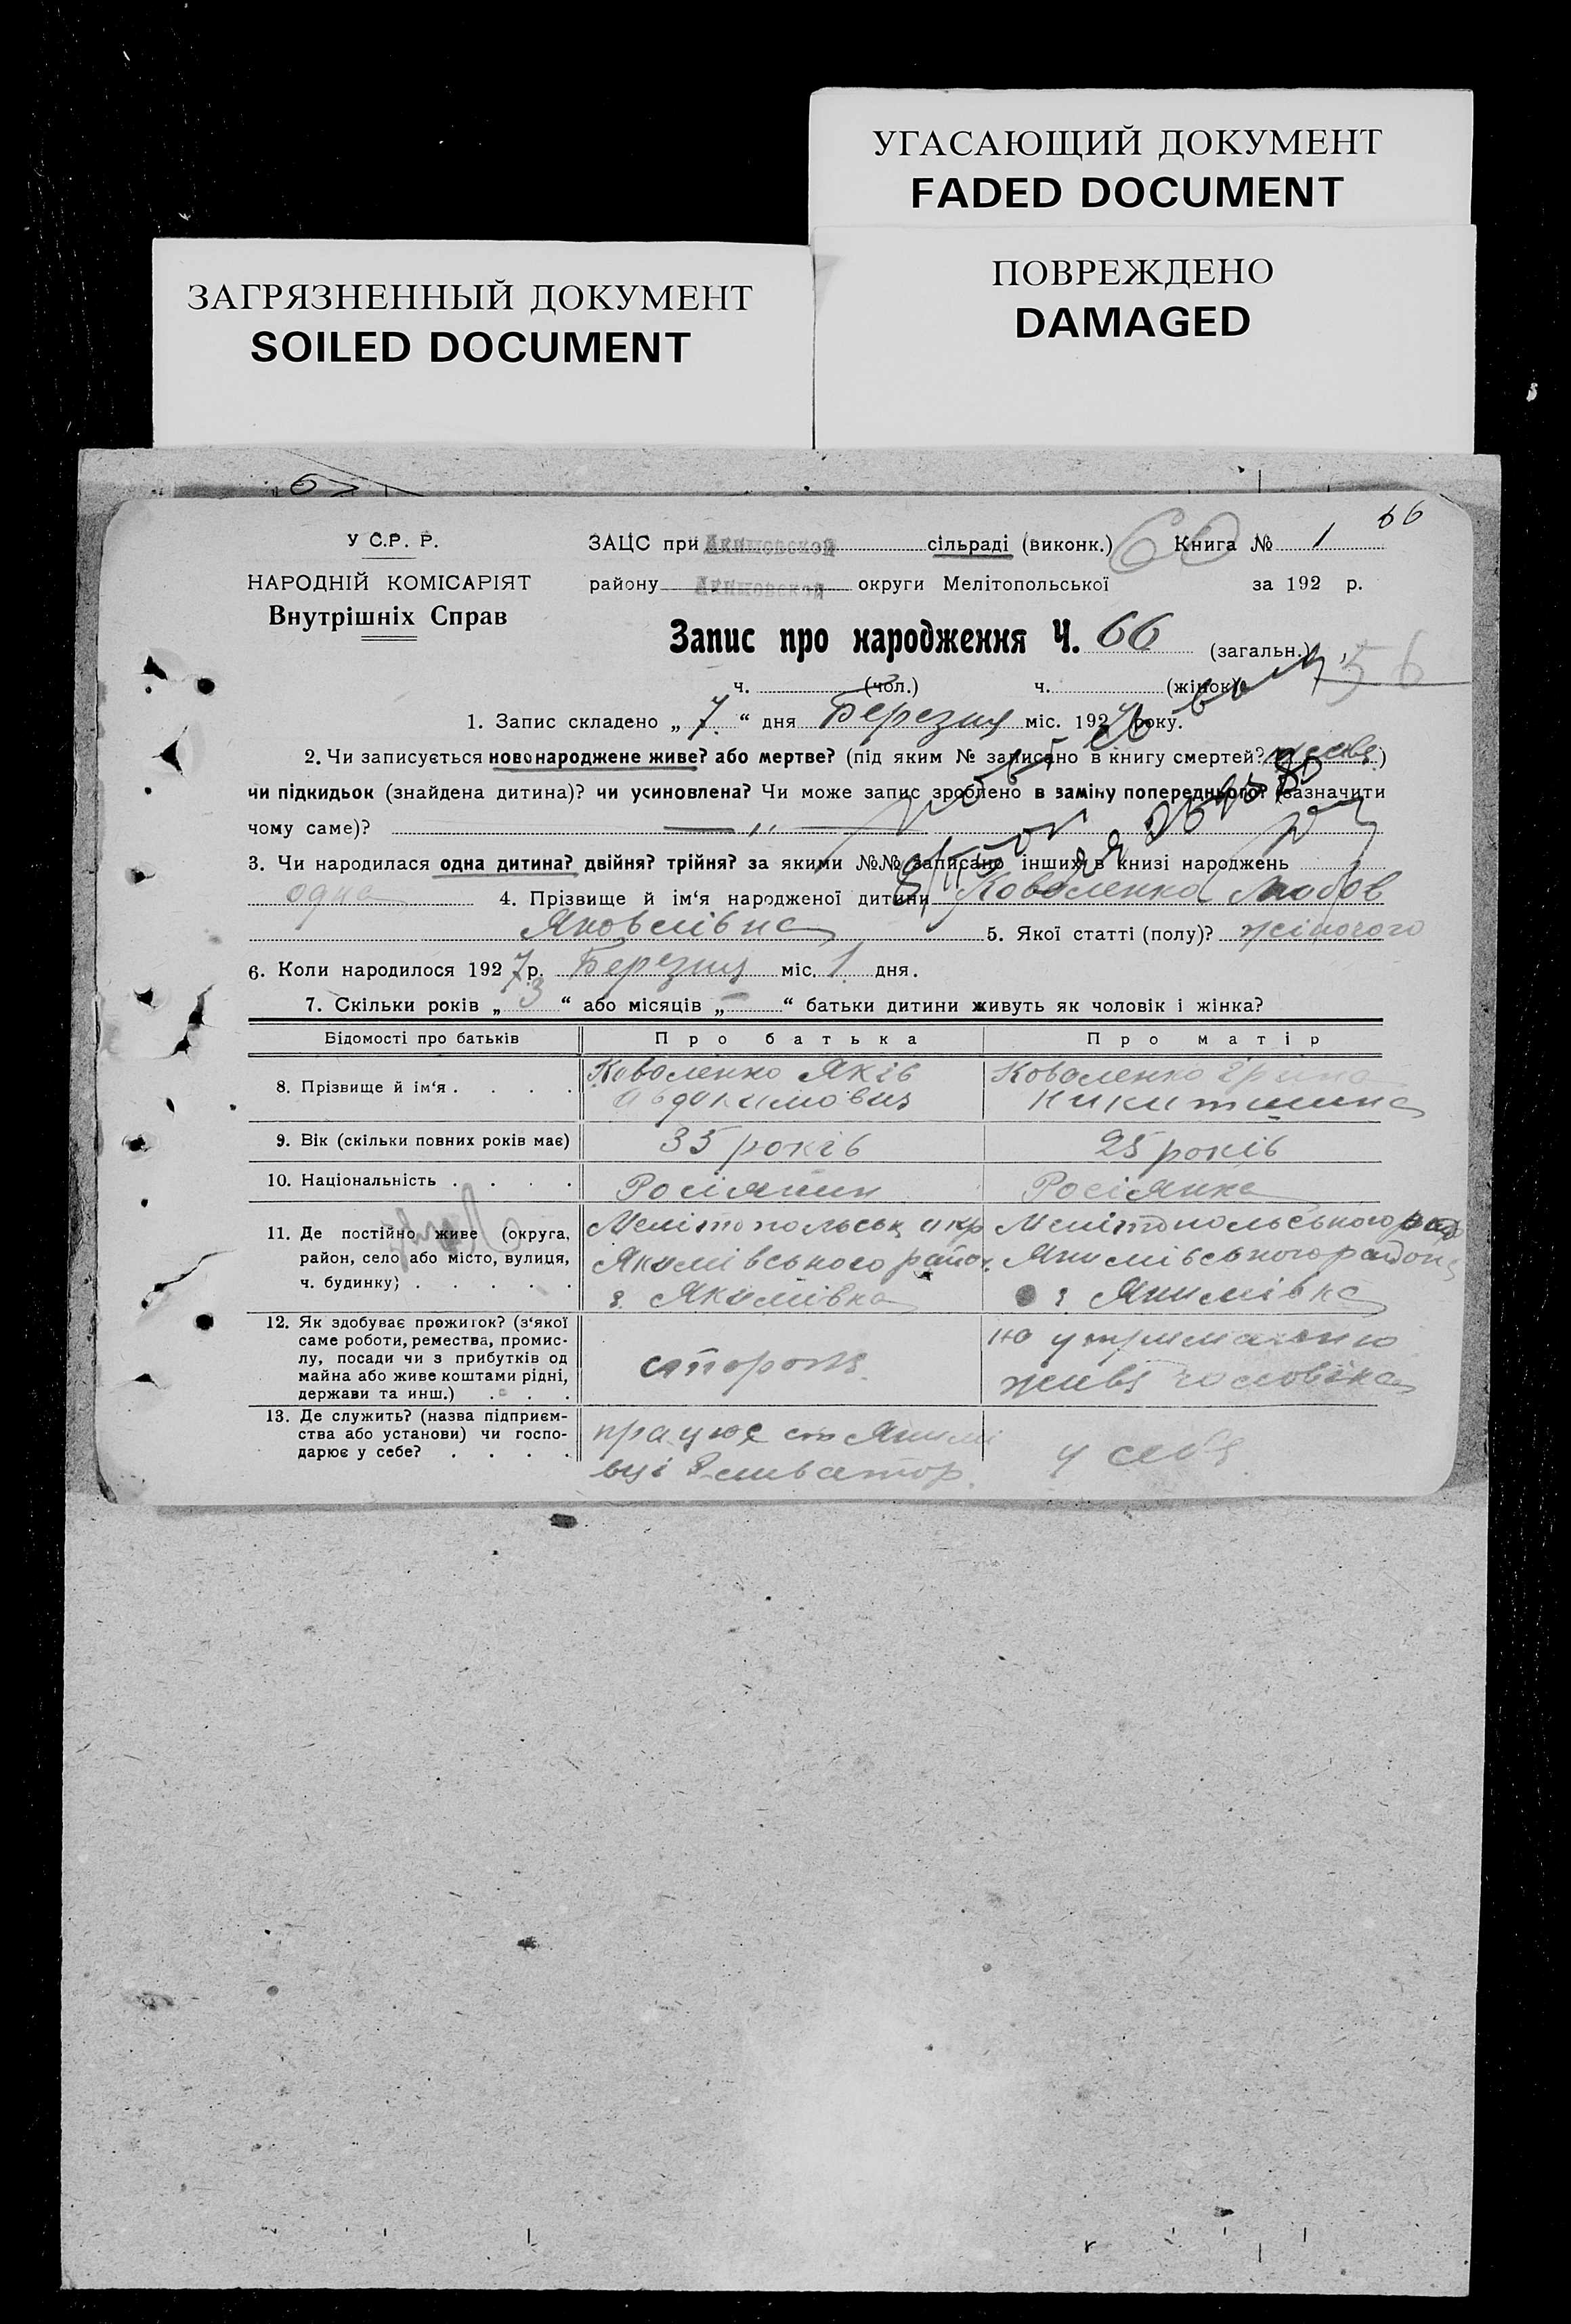 УГАСАЮЩИЙ ДОКУМЕНТ
FADED DOCUMENT
ЗАГРЯЗНЕННЫЙ ДОКУМЕНТ
SOILED DOCUMENT
ПОВРЕЖДЕНО
DAMAGED
66
У С.Р. Р.
НАРОДНІЙ КОМІСАРІЯТ
Внутрішніх Справ
ЗАЦС при Акимовской сільраді (виконк.) 60 Книга № 1
району Акимовской округи Мелітопольської за 192 р.
Запис про народження Ч. 66 (загальн.) 56
ч. (чол.) ч. (жінок)
1. Запис складено „ 7 “ дня Березня міс. 1927 року.
2. Чи записується новонароджене живе? або мертве? (під яким № записано в книгу смертей? живе)
чи підкидьок (знайдена дитина)? чи усиновлена? Чи може запис зроблено в заміну попереднього? (зазначити
чому саме)? — „ —
3. Чи народилася одна дитина? двійня? трійня? за якими №№ записано інших в книзі народжень
одна 4. Прізвище й ім‘я народженої дитини Коваленко Любов
Яковлівна 5. Якої статті (полу)? жіночого
6. Коли народилося 1927 р. Березня міс. 1 дня.
7. Скільки років „ 3 “ або місяців „ — “ батьки дитини живуть як чоловік і жінка?
Відомості про батьків Про батька Про матір
8. Прізвище й ім‘я . . . . Коваленко Яків Коваленко Ірина
Авдокимович Никитишна
9. Вік (скільки повних років має) 35 років 25 років
10. Національність . . . . Росіянин Росіянка
11. Де постійно живе (округа, Мелітопольськ окр Мелітопольського
район, село або місто, вулиця, Якимівського район. Якимівського району
ч. будинку) . . . . . Якимівка Якимівка
12. Як здобуває прожиток? (з‘якої
саме роботи, ремества, промис-
лу, посади чи з прибутків од
майна або живе коштами рідні,
держави та инш.) . . .
сторож
на утриманню
живе чоловіка
13. Де служить? (назва підприєм-
ства або установи) чи госпо-
дарює у себе? . . . .
працює ст Якимі
вці Елеватор.
у себе